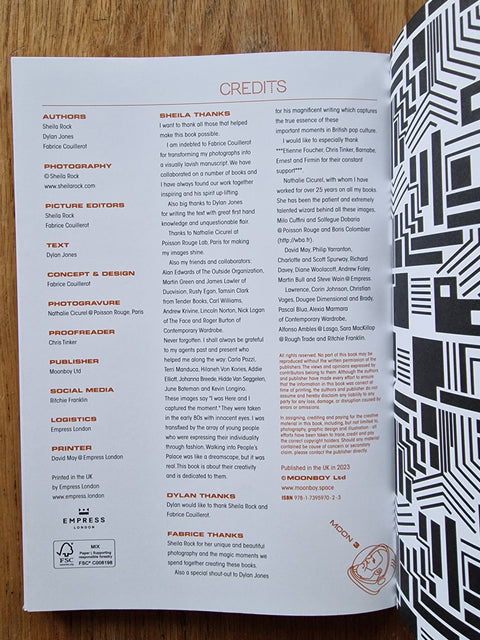 CREDITS
AUTHORS
Sheila Rock
Dylan Jones
Fabrice Couillerot
PHOTOGRAPHY
© Sheila Rock
www.sheilarock.com
PICTURE EDITORS
Sheila Rock
Fabrice Couillerot
TEXT
Dylan Jones
CONCEPT & DESIGN
Fabrice Couillerot
PHOTOGRAVURE
Nathalie Cicurel @ Poisson Rouge, Paris
PROOFREADER
Chris Tinker
PUBLISHER
Moonboy Ltd
SOCIAL MEDIA
Ritchie Franklin
LOGISTICS
Empress London
PRINTER
David May @ Empress London
Printed in the UK
by Empress London
www.empress.london
EMPRESS
LONDON
FSC
www.fsc.org
MIX
Paper | Supporting
responsible forestry
FSC® C008198
SHEILA THANKS
I want to thank all those that helped
make this book possible.
I am indebted to Fabrice Couillerot
for transforming my photographs into
a visually lavish manuscript. We have
collaborated on a number of books and
I have always found our work together
inspiring and his spirit up-lifting.
Also big thanks to Dylan Jones
for writing the text with great first hand
knowledge and unquestionable flair.
Thanks to Nathalie Cicurel at
Poisson Rouge Lab, Paris for making
my images shine.
Also my friends and collaborators:
Alan Edwards of The Outside Organization,
Martin Green and James Lawler of
Duovision, Rusty Egan, Tamsin Clark
from Tender Books, Carl Williams,
Andrew Krivine, Lincoln Norton, Nick Logan
of The Face and Roger Burton of
Contemporary Wardrobe.
Never forgotten. I shall always be grateful
to my agents past and present who
helped me along the way: Carla Pozzi,
Terri Manduca, Hilaneh Von Kories, Eddie
Elliott, Johanna Breede, Hidde Van Seggelen,
June Bateman and Kevin Longino.
These images say "I was Here and I
captured the moment." They were taken
in the early 80s with innocent eyes. I was
transfixed by the array of young people
who were expressing their individuality
through fashion. Walking into People's
Palace was like a dreamscape, but it was
real. This book is about their creativity
and is dedicated to them.
DYLAN THANKS
Dylan would like to thank Sheila Rock and
Fabrice Couillerot.
FABRICE THANKS
Sheila Rock for her unique and beautiful
photography and the magic moments we
spend together creating these books.
Also a special shout-out to Dylan Jones
for his magnificent writing which captures
the true essence of these
important moments in British pop culture.
I would like to especially thank
***Etienne Foucher, Chris Tinker, Barnabe,
Ernest and Firmin for their constant
support***
Nathalie Cicurel, with whom I have
worked for over 25 years on all my books.
She has been the patient and extremely
talented wizard behind all these images,
Milo Cuffini and Solfegue Dabaria
@ Poisson Rouge and Boris Colombier
(http://wba.fr).
David May, Philip Yarranton,
Charlotte and Scott Spurway, Richard
Davey, Diane Woolacott, Andrew Foley,
Martin Bull and Steve Wain @ Empress.
Lawrence, Corin Johnson, Christian
Vages, Dougee Dimensional and Brady,
Pascal Blua, Alexia Marmara
of Contemporary Wardrobe,
Alfonso Ambles @ Lasgo, Sara MacKillop
@ Rough Trade and Ritchie Franklin.
All rights reserved. No part of this book may be
reproduced without the written permission of the
publishers. The views and opinions expressed by
contributors belong to them. Although the authors
and publisher have made every effort to ensure
that the information in this book was correct at
time of printing, the authors and publisher do not
assume and hereby disclaim any liability to any
party for any loss, damage, or disruption caused by
errors or omissions.
In assigning, crediting and paying for the creative
material in this book, including, but not limited to,
photography, graphic design and illustration - all
efforts have been taken to trace, credit and pay
the correct copyright holders. Should any material
contained be cause of concern or secondary
claim, please contact the publisher directly.
Published in the UK in 2023
©MOONBOY Ltd
www.moonboy.space
ISBN 978-1-7395970-2-3
MOON 3